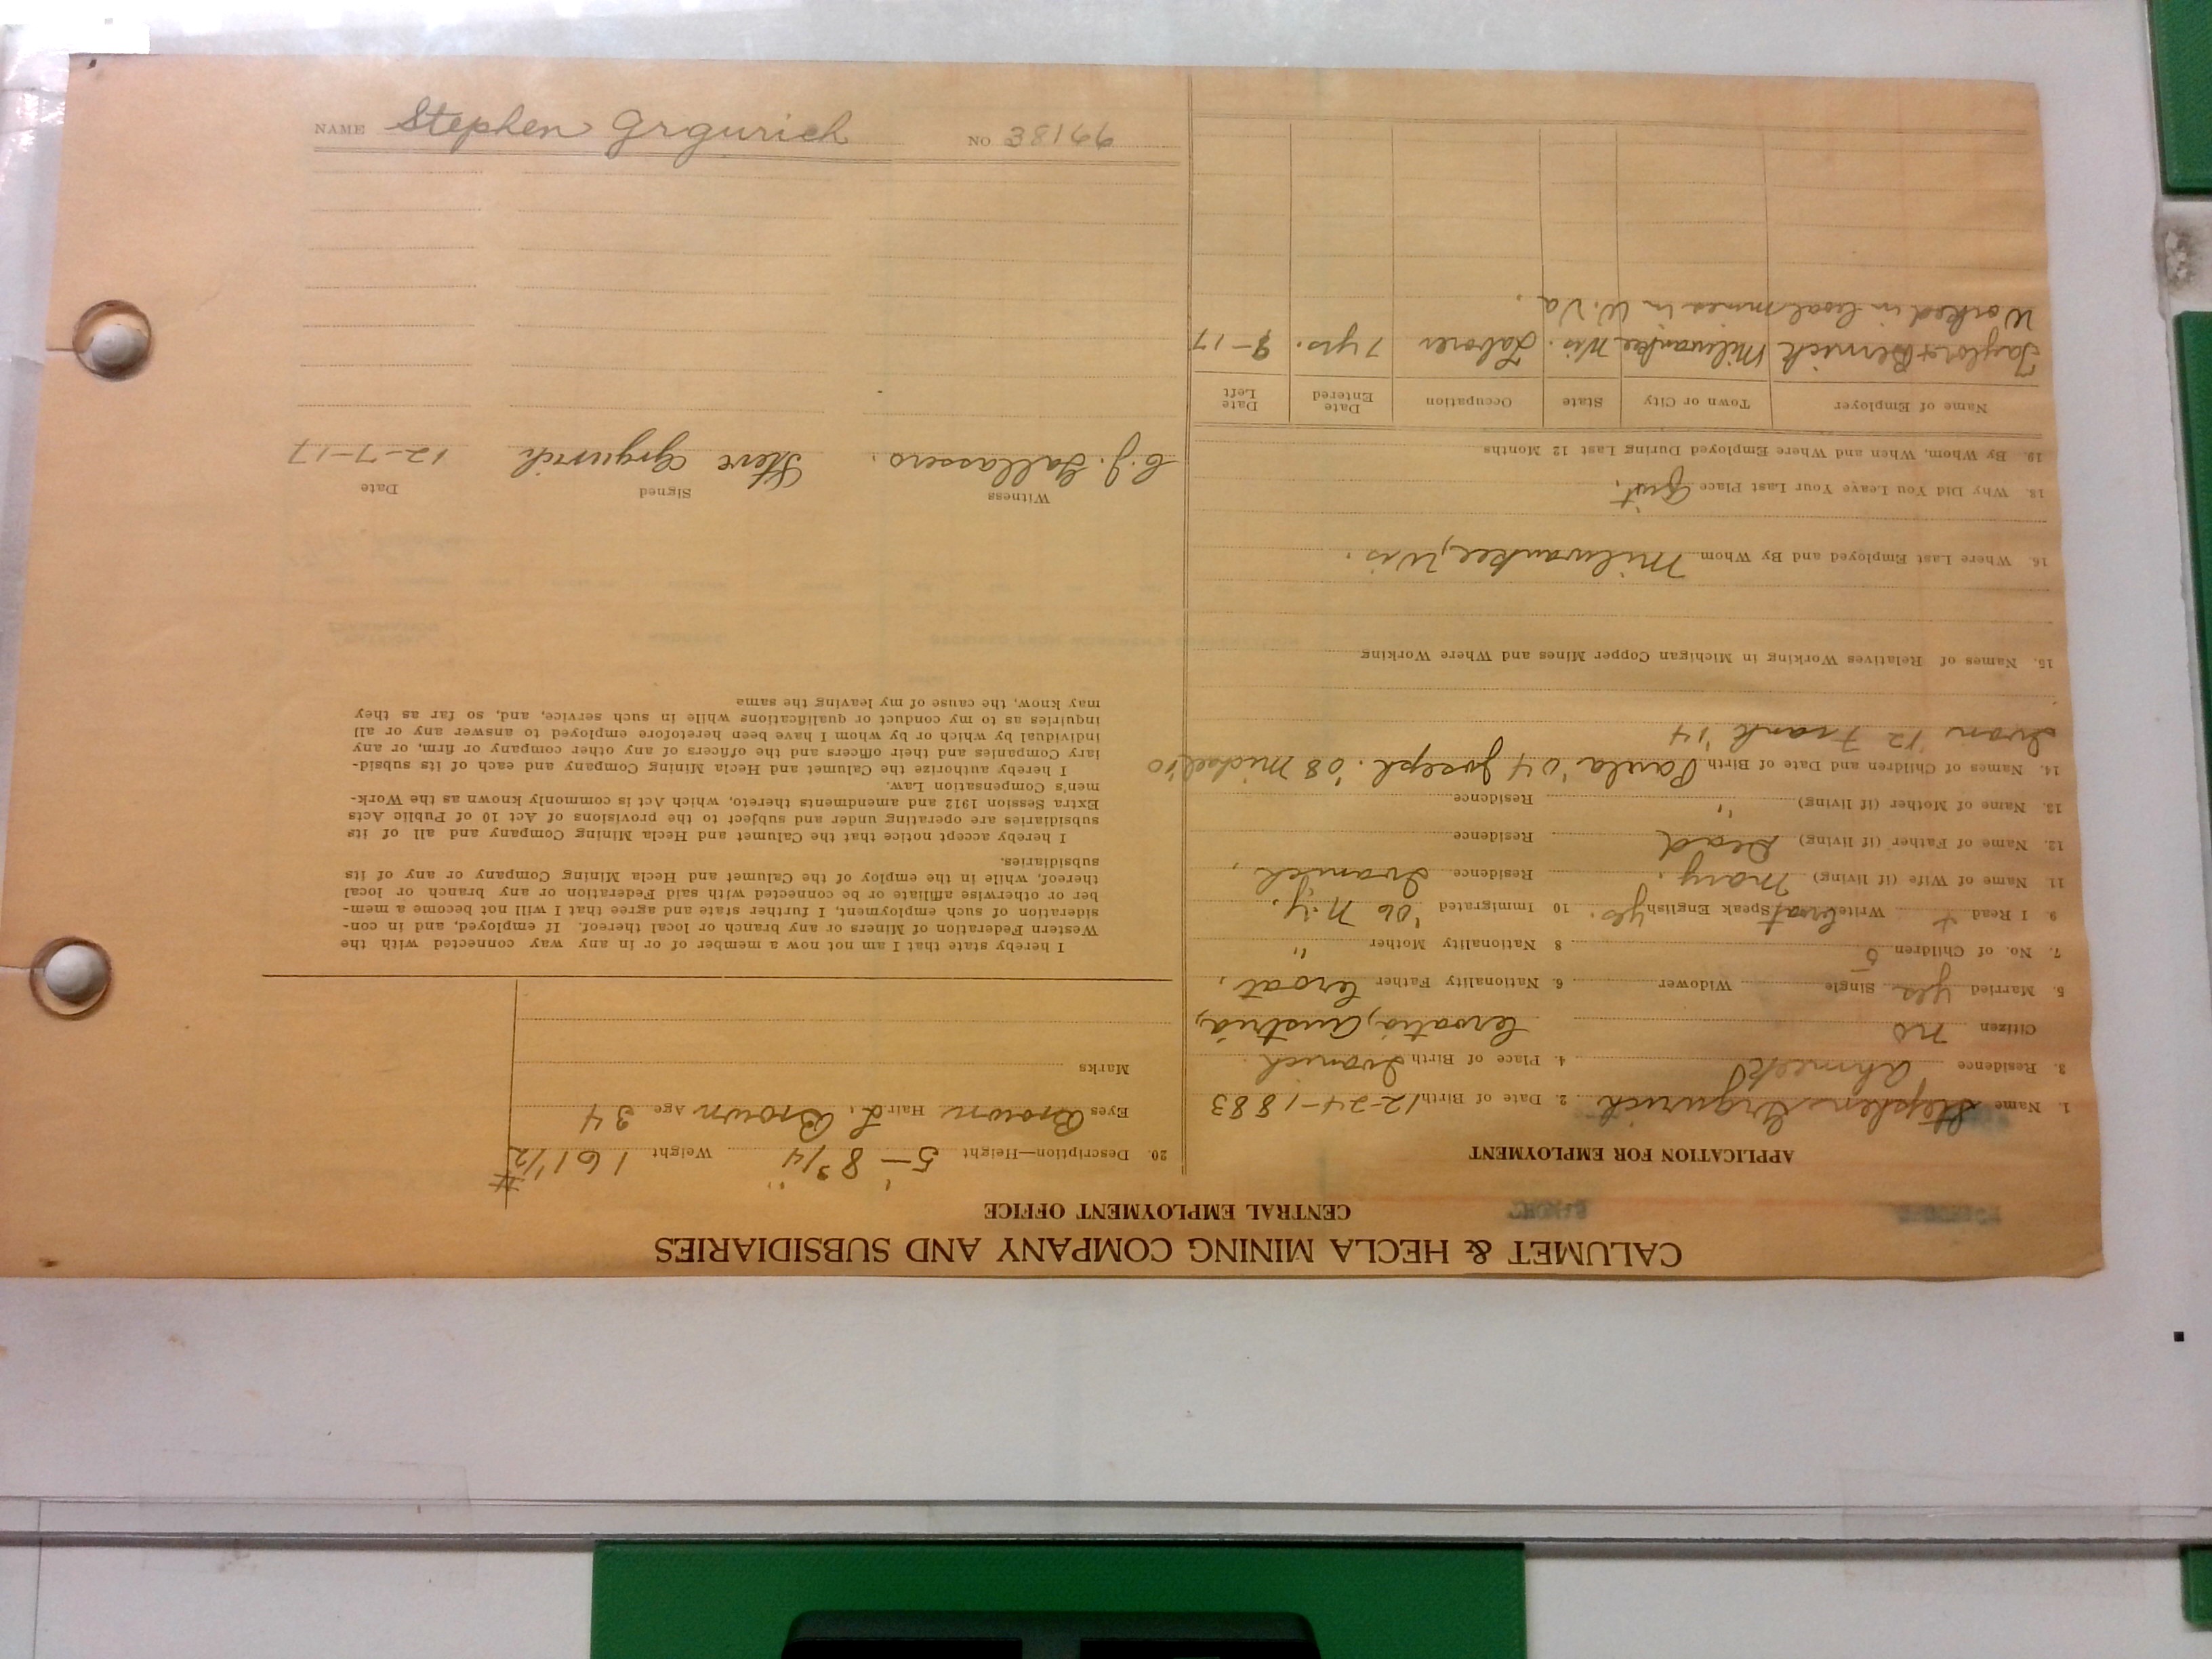 CALUMET & HECLA MINING COMPANY AND SUBSIDIARIES
CENTRAL EMPLOYMENT OFFICE
APPLICATION FOR EMPLOYMENT
1. Name Stephen Grgurich 2. Date of Birth 12-24-1883
3. Residence Ahmeek 4. Place of Birth Ivanich
Citizen no Croatia, Austria,
5. Married yes Single Widower 6. Nationality Father Croat,
7. No. of Children 5 8 Nationality Mother "
9. I Read + Write Croat Speak English yes. 10 Immigrated '06 N.Y.
11. Name of Wife (if living) Mary. Residence Ivanich,
12. Name of Father (if living) Dead Residence
13. Name of Mother (if living) " Residence
14. Names of Children and Date of Birth Paula '04 Joseph. '08 Michael '10
Ivan '12 Frank '14
15. Names of Relatives Working in Michigan Copper Mines and Where Working
16. Where Last Employed and By Whom Milwaukee, Wis.
18. Why Did You Leave Your Last Place Quit.
19. By Whom, When and Where Employed During Last 12 Months
Name of Employer Town or City State Occupation Date Entered Date Left
Taylor + Milwaukee Wis. Laborer 7 yrs. 9-17
Worked in Coal mines in W. Va.
20. Description—Height 5'-8 3/4" Weight 161 1/2 #
Eyes Brown Hair L. Brown Age 34
Marks
I hereby state that I am not now a member of or in any way connected with the
Western Federation of Miners or any branch or local thereof. If employed, and in con-
sideration of such employment, I further state and agree that I will not become a mem-
ber or otherwise affiliate or be connected with said Federation or any branch or local
thereof, while in the employ of the Calumet and Hecla Mining Company or any of its
subsidiaries.
I hereby accept notice that the Calumet and Hecla Mining Company and all of its
subsidiaries are operating under and subject to the provisions of Act 10 of Public Acts
Extra Session 1912 and amendments thereto, which Act is commonly known as the Work-
men's Compensation Law.
I hereby authorize the Calumet and Hecla Mining Company and each of its subsid-
iary Companies and their officers and the officers of any other company or firm, or any
individual by which or by whom I have been heretofore employed to answer any or all
inquiries as to my conduct or qualifications while in such service, and, so far as they
may know, the cause of my leaving the same
Witness Signed Date
C.J. Gallassero. Steve Grgurich 12-7-17
NAME Stephen Grgurich NO 38166